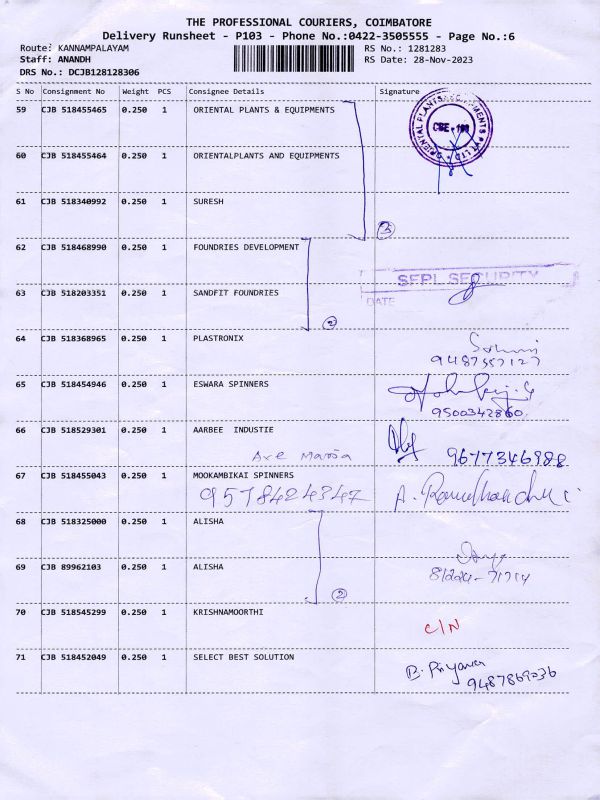 THE PROFESSIONAL COURIERS, COIMBATORE
Delivery Runsheet - P103 - Phone No.:0422-3505555 - Page No.:6
Route: KANNAMPALAYAM RS No.: 1281283
Staff: ANANDH RS Date: 28-Nov-2023
DRS No.: DCJB128128306
S No Consignment No Weight PCS Consignee Details Signature
59 CJB 518455465 0.250 1 ORIENTAL PLANTS & EQUIPMENTS
ORIENTAL PLANTS EQUIPMENTS PVT LTD
60 CJB 518455464 0.250 1 ORIENTALPLANTS AND EQUIPMENTS
61 CJB 518340992 0.250 1 SURESH
3
62 CJB 518468990 0.250 1 FOUNDRIES DEVELOPMENT
SFPL SECURITY
63 CJB 518203351 0.250 1 SANDFIT FOUNDRIES
DATE
2
64 CJB 518368965 0.250 1 PLASTRONIX
9487557127
65 CJB 518454946 0.250 1 ESWARA SPINNERS
9500342860
66 CJB 518529301 0.250 1 AARBEE INDUSTIE
Ave Maria 9677346988
67 CJB 518455043 0.250 1 MOOKAMBIKAI SPINNERS
9578424347
68 CJB 518325000 0.250 1 ALISHA
69 CJB 89962103 0.250 1 ALISHA
81224-71714
2
70 CJB 518545299 0.250 1 KRISHNAMOORTHI
C/N
71 CJB 518452049 0.250 1 SELECT BEST SOLUTION
B. Priyanka
9487869036